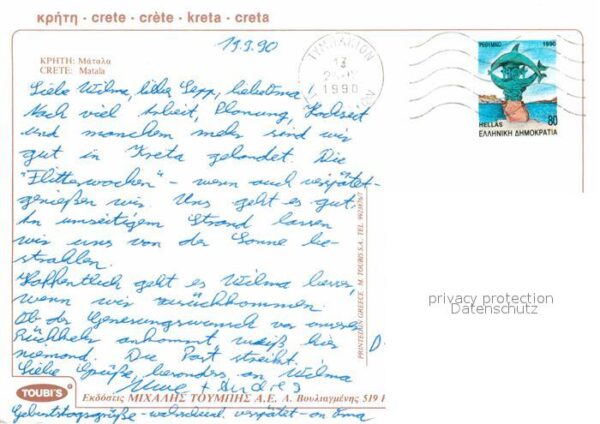 κρήτη · crete · crète · kreta · creta
ΚΡΗΤΗ: Μάταλα
CRETE: Matala
19.9.90
ΤΥΜΠΑΚΙΟΝ
1990
ΡΕΘΥΜΝΟ 1990
HELLAS 80
ΕΛΛΗΝΙΚΗ ΔΗΜΟΚΡΑΤΙΑ
Liebe Wilma, lieber Sepp, liebe Oma!
Nach viel Arbeit, Planung, Hochzeit
und manchem mehr sind wir
gut in Kreta gelandet. Die
"Flitterwochen" - wenn auch verspätet -
genießen wir. Uns geht es gut.
An umseitigem Strand lassen
wir uns von der Sonne be-
strahlen.
Hoffentlich geht es Wilma besser,
wenn wir zurückkommen.
Ob der Genesungswunsch vor unserer
Rückkehr ankommt, weiß hier
niemand. Die Post streikt.
Liebe Grüße, besonders an Wilma
Uwe + Andrea
Geburtstagsgrüße - wahrscheinl. verspätet - an Oma
PRINTED IN GREECE, M. TOUBIS S.A., TEL.
privacy protection
Datenschutz
TOUBI'S ®
Εκδόσεις ΜΙΧΑΛΗΣ ΤΟΥΜΠΗΣ Α.Ε. Λ. Βουλιαγμένης 519